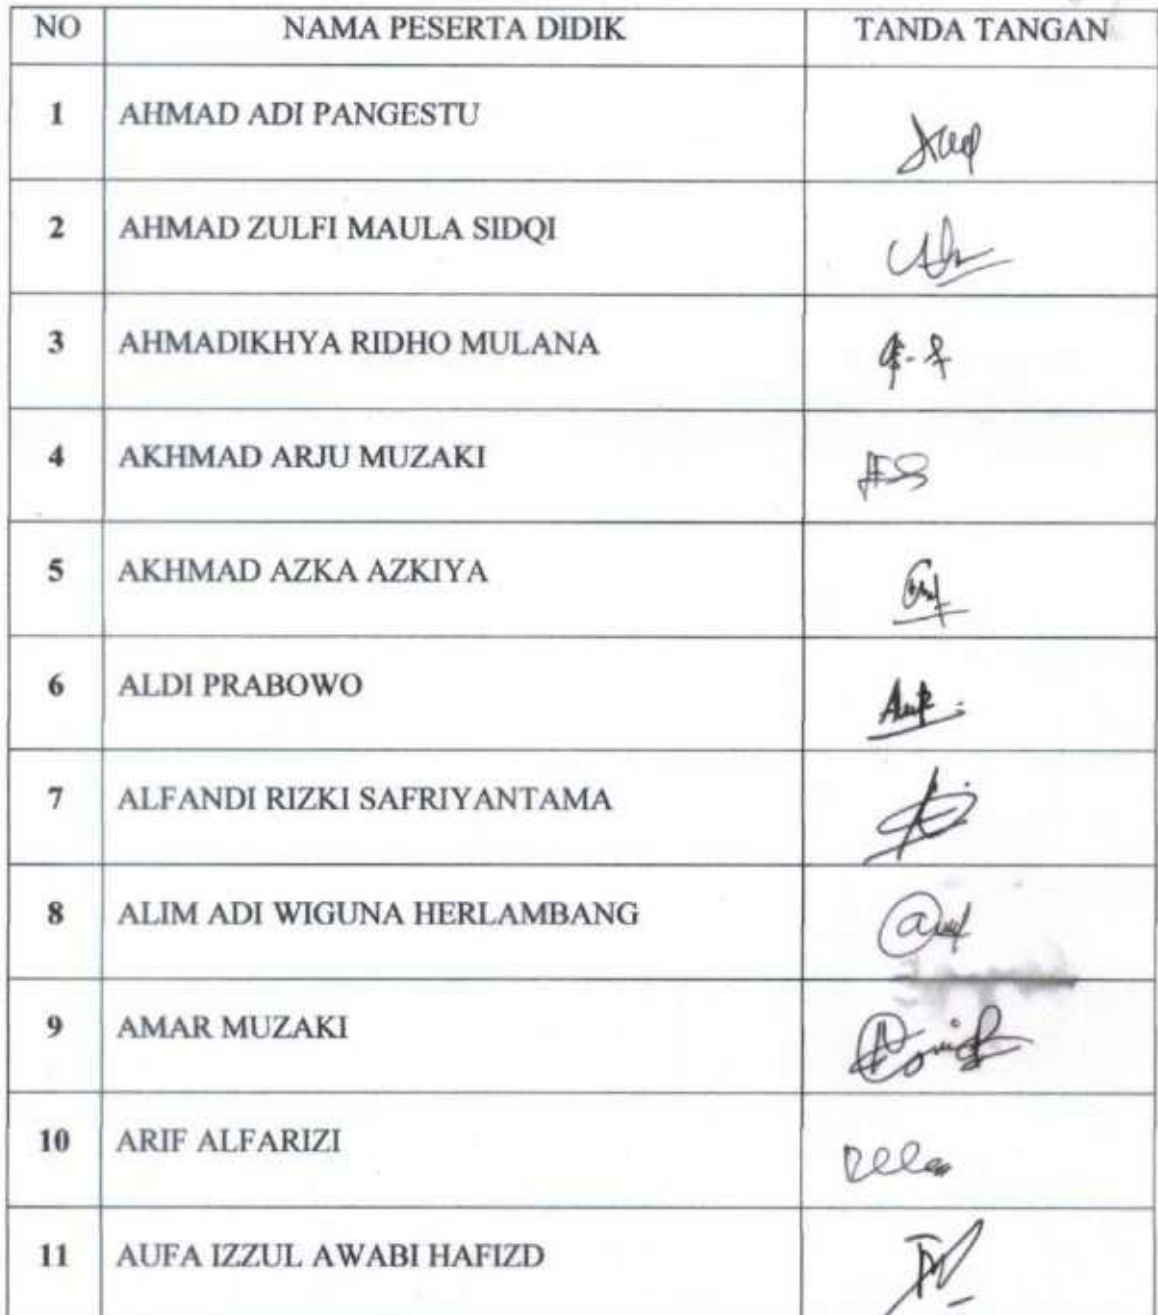 NO NAMA PESERTA DIDIK TANDA TANGAN
1 AHMAD ADI PANGESTU
2 AHMAD ZULFI MAULA SIDQI
3 AHMADIKHYA RIDHO MULANA
4 AKHMAD ARJU MUZAKI
5 AKHMAD AZKA AZKIYA
6 ALDI PRABOWO
7 ALFANDI RIZKI SAFRIYANTAMA
8 ALIM ADI WIGUNA HERLAMBANG
9 AMAR MUZAKI
10 ARIF ALFARIZI
11 AUFA IZZUL AWABI HAFIZD